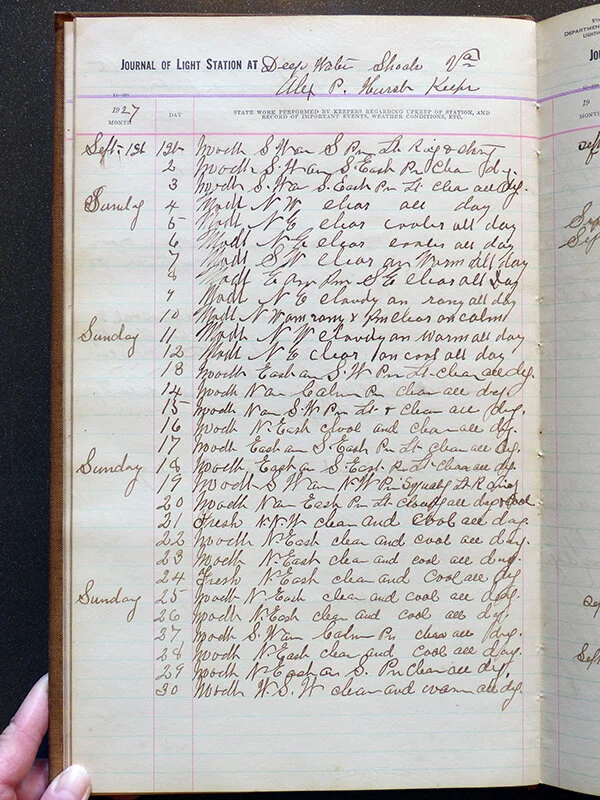 JOURNAL OF LIGHT STATION AT Deep Water Shoals Va
Alex P. Hurst Keeper
1927
MONTH DAY STATE WORK PERFORMED BY KEEPERS REGARDING UPKEEP OF STATION, AND
RECORD OF IMPORTANT EVENTS, WEATHER CONDITIONS, ETC.
Sept. 1st 1st Modth S.W am S Pm Lt
2 Modth S.W am S.East Pm Clear day.
3 Modth S.W am S.East Pm Lt. clear all day.
Sunday 4 Modt N W clear all day
5 Modt N E clear cooler all day
6 Modt N E clear cooler all day
7 Modt S W clear an Warm all day
8 Modt E am Pm S E clear all Day
9 Modt N E cloudy an rany all day
10 Modt N W am rany & Pm clear an calm
Sunday 11 Modt N W cloudy an Warm all day
12 Modt N E clear an cool all day
13 Modth East am S.W Pm Lt. clear all day.
14 Modth N am Calm Pm clear all day.
15 Modth N am S.W Pm Lt. & clear all day.
16 Modth N.East cool and clear all day.
17 Modth East am S.East Pm Lt. clear all day.
Sunday 18 Modth East am S.East Pm Lt. clear all day.
19 Modth S W am N.W Pm Squally Lt
20 Modth N am East Pm Lt. cloudy all day & cool
21 Fresh N.N.W clear and cool all day.
22 Modth N.East clear and cool all day.
23 Modth N.East clear and cool all day.
24 Fresh N.East clear and cool all day
Sunday 25 Modth N.East clear and cool all day.
26 Modth N.East clear and cool all day.
27 Modth S.W am Calm Pm clear all day.
28 Modth N.East clear and cool all day.
29 Modth N.East am S. Pm clear all day.
30 Modth W.S.W clear and warm all day.